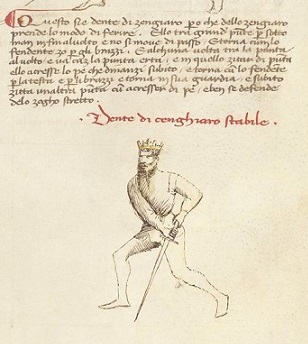 Questo sie dente di zengiaro pero che dello zengiaro
prende lo modo di ferire. Ello tra grand punte per sotto
man in fin al volto e no si move di passo. E torna cum lo
fendente zo per gli brazzi. E alchuna volta tra la punta
al volto e va cum la punta erta, e in quello zitar di punta
ello acresse lo pe ch e dinanzi subito, e torna cum lo fendente
per la testa e per li brazzi e torna in sua guardia e subito
zitta un altra punta cum acresser di pe, e ben se defende
delo zogho stretto.
Dente di cenghiaro stabile.